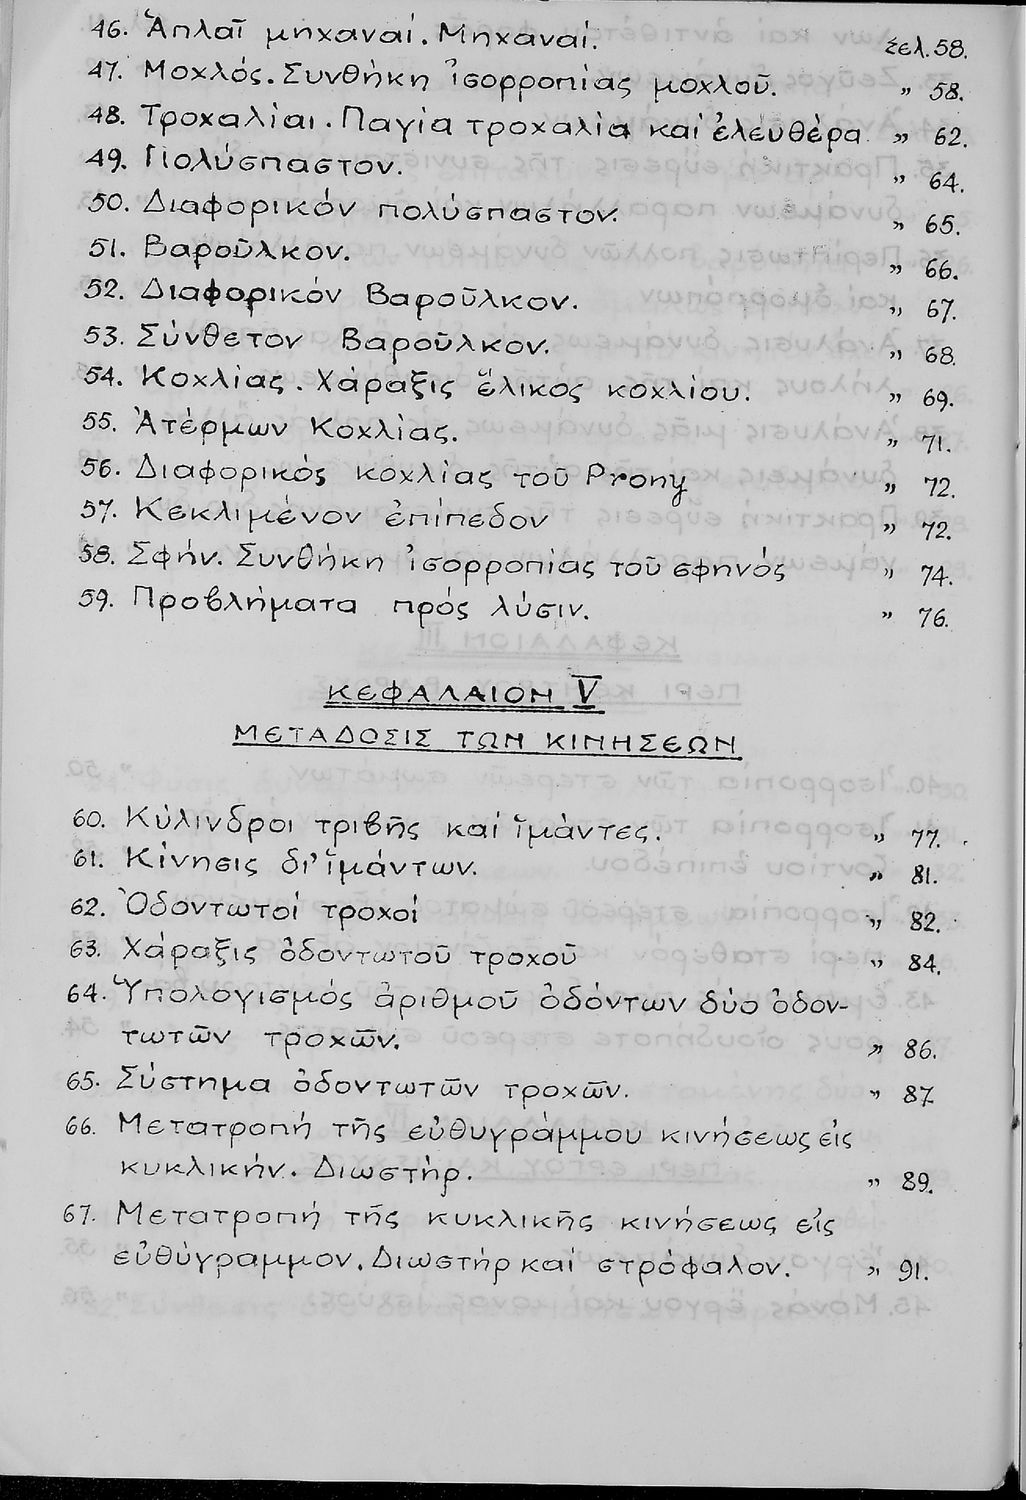 46. Ἁπλαῖ μηχαναί. Μηχαναί. Σελ. 58.
47. Μοχλός. Συνθήκη ἰσορροπίας μοχλοῦ. „ 58.
48. Τροχαλίαι. Παγία τροχαλία καί ἐλευθέρα „ 62.
49. Πολύσπαστον. „ 64.
50. Διαφορικόν πολύσπαστον. „ 65.
51. Βαροῦλκον. „ 66.
52. Διαφορικόν Βαροῦλκον. „ 67.
53. Σύνθετον Βαροῦλκον. „ 68.
54. Κοχλίας. Χάραξις ἕλικος κοχλίου. „ 69.
55. Ἀτέρμων Κοχλίας. „ 71.
56. Διαφορικός κοχλίας τοῦ Prony „ 72.
57. Κεκλιμένον ἐπίπεδον „ 72.
58. Σφήν. Συνθήκη ἰσορροπίας τοῦ σφηνός „ 74.
59. Προβλήματα πρός λύσιν. „ 76.
ΚΕΦΑΛΑΙΟΝ V
ΜΕΤΑΔΟΣΙΣ ΤΩΝ ΚΙΝΗΣΕΩΝ
60. Κύλινδροι τριβῆς καί ἱμάντες. „ 77.
61. Κίνησις δι' ἱμάντων. „ 81.
62. Ὀδοντωτοί τροχοί „ 82.
63. Χάραξις ὀδοντωτοῦ τροχοῦ „ 84.
64. Ὑπολογισμός ἀριθμοῦ ὀδόντων δύο ὀδον-
τωτῶν τροχῶν. „ 86.
65. Σύστημα ὀδοντωτῶν τροχῶν. „ 87.
66. Μετατροπή τῆς εὐθυγράμμου κινήσεως εἰς
κυκλικήν. Διωστήρ. „ 89.
67. Μετατροπή τῆς κυκλικῆς κινήσεως εἰς
εὐθύγραμμον. Διωστήρ καί στρόφαλον. „ 91.